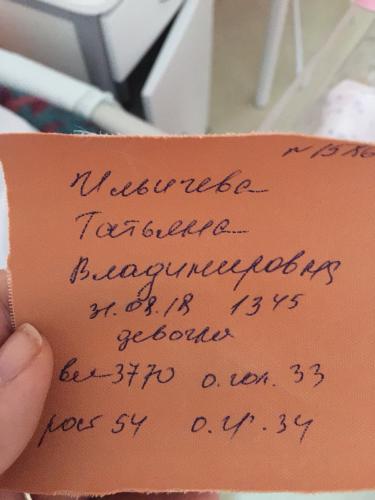 N 1586
Ильичева
Татьяна
Владимировна
31.08.18 1345
девочка
вес 3770 о.гол. 33
рост 54 о.гр. 34